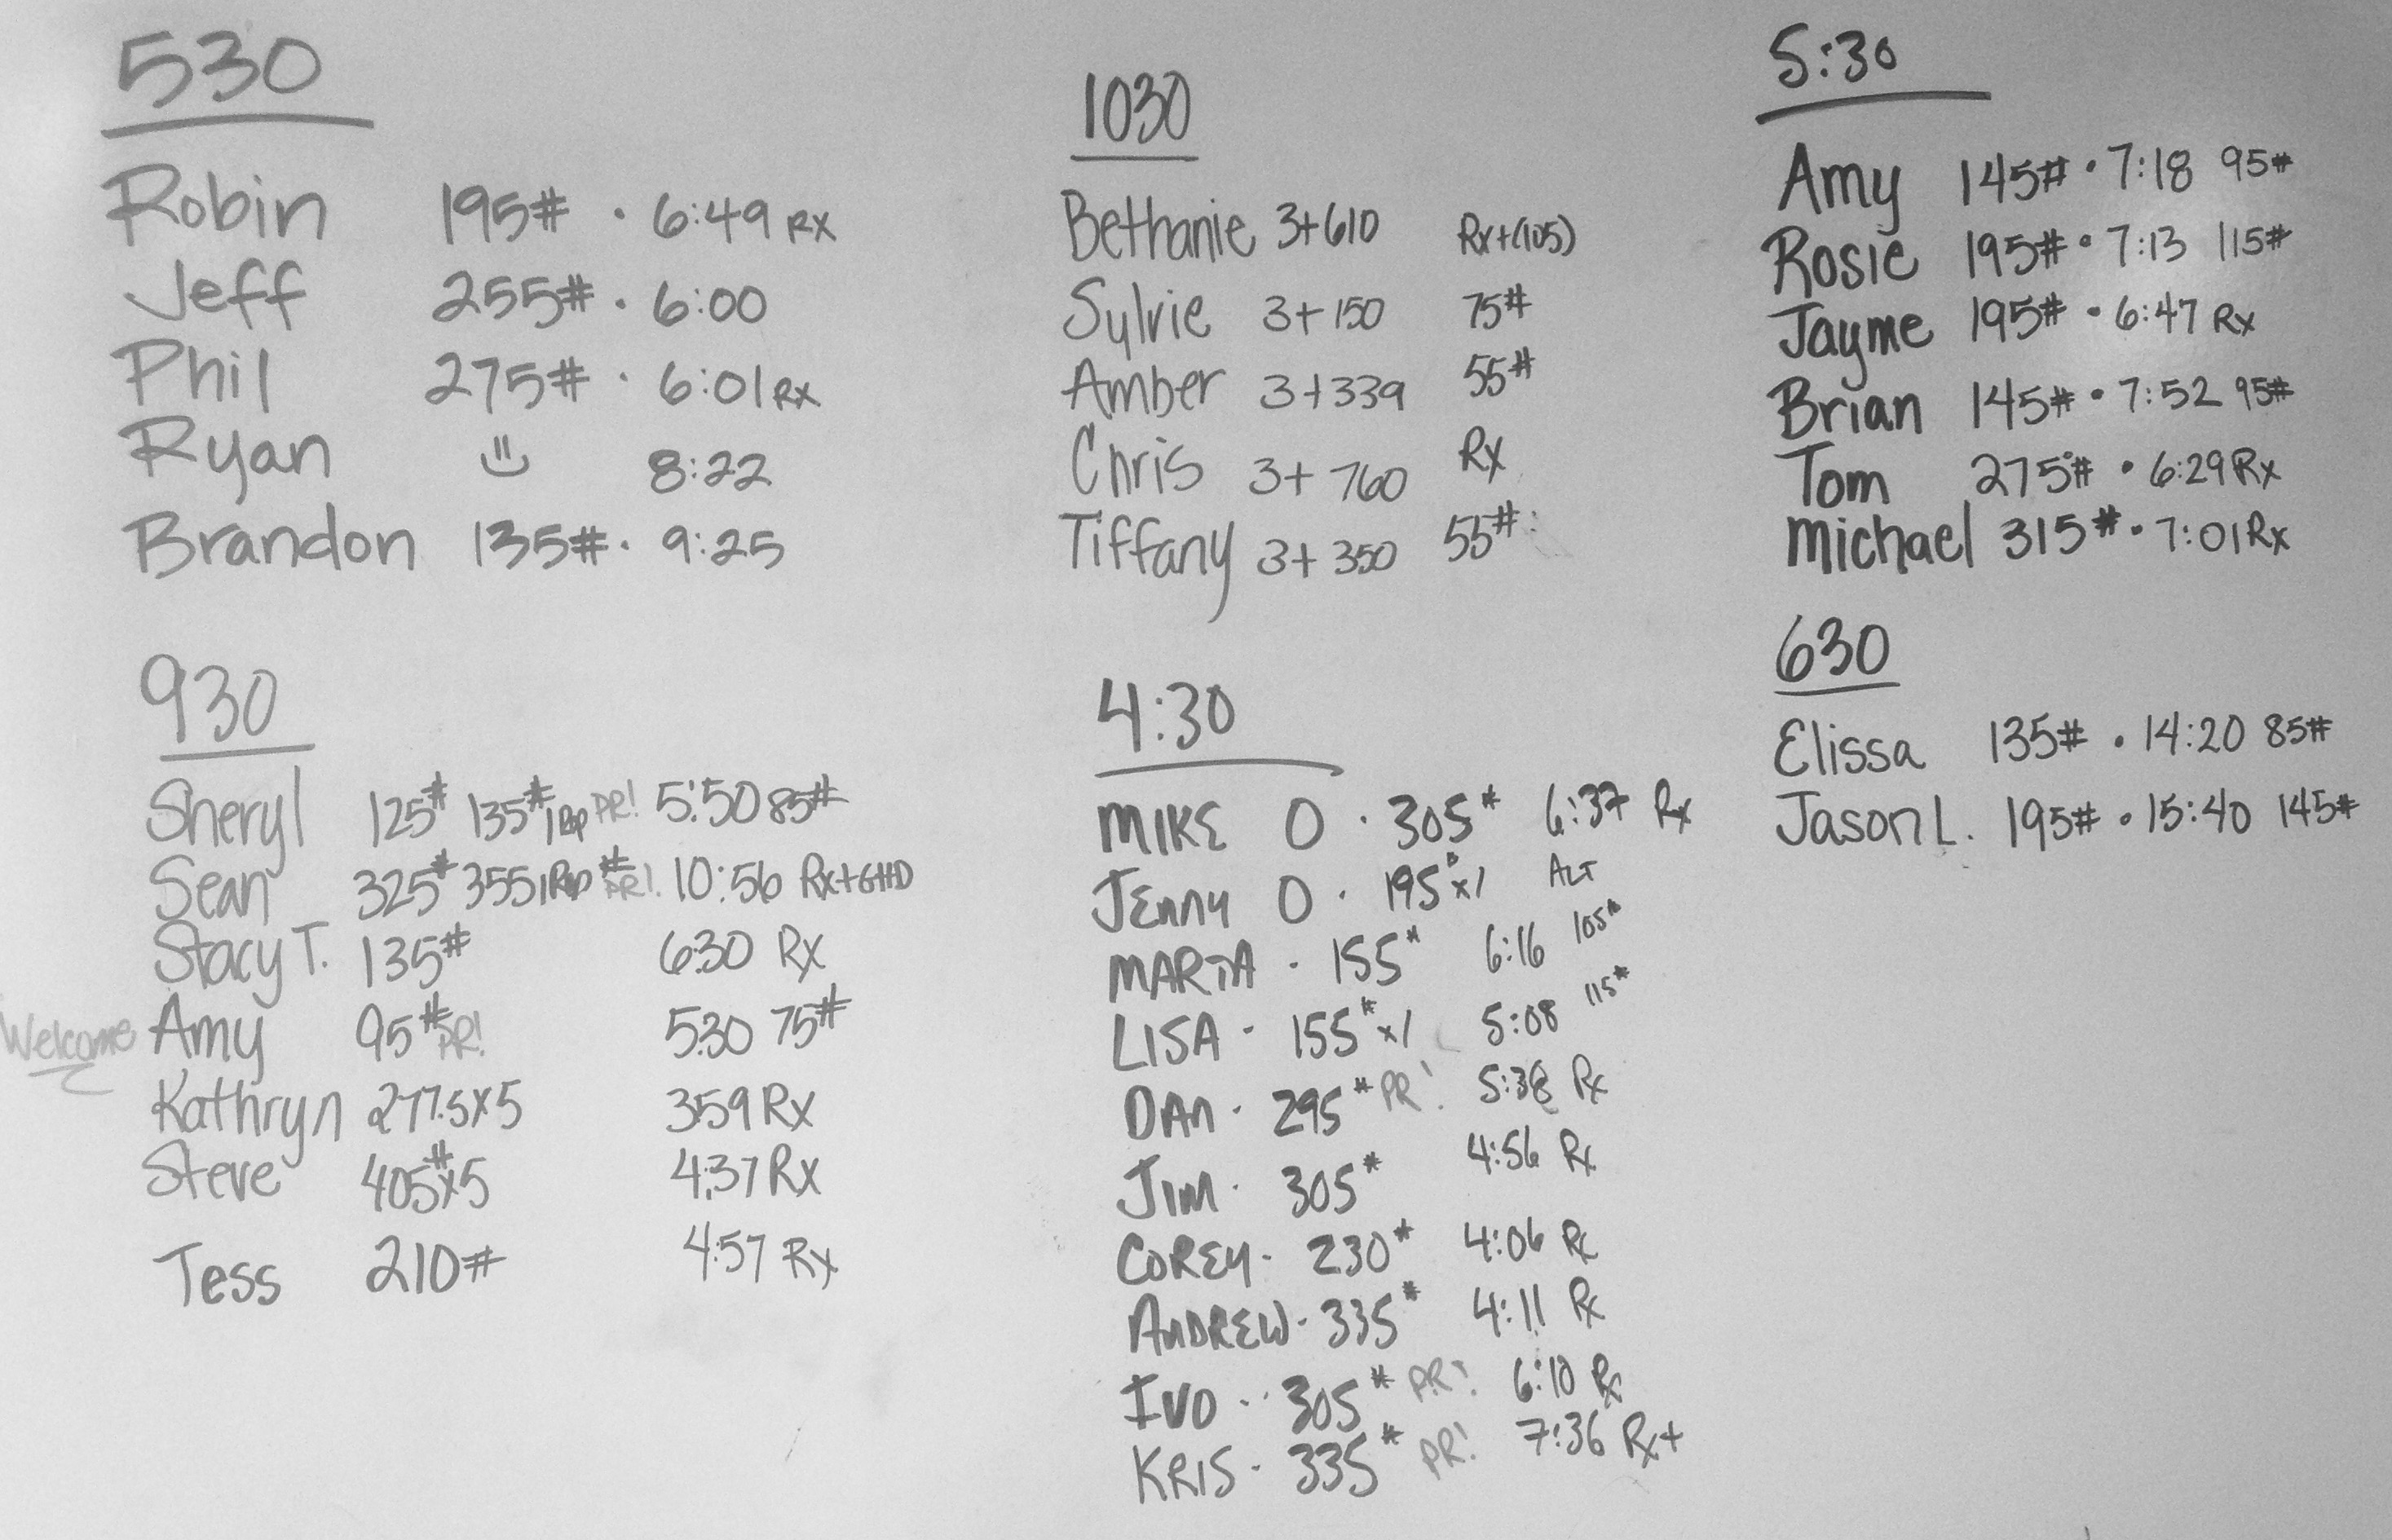 530
Robin 195# · 6:49 Rx
Jeff 255# · 6:00
Phil 275# · 6:01 Rx
Ryan 8:22
Brandon 135# · 9:25
930
Sheryl 125# 135# 1 Rep PR! 5:50 85#
Sean 325# 355 1 Rep # PR! 10:56 Rx+GHD
Stacy T. 135# 6:30 Rx
Welcome Amy 95# PR! 5:30 75#
Kathryn 277.5x5 3:59 Rx
Steve 405#x5 4:37 Rx
Tess 210# 4:57 Rx
1030
Bethanie 3+610 Rx+(105)
Sylvie 3+150 75#
Amber 3+339 55#
Chris 3+760 Rx
Tiffany 3+350 55#
4:30
MIKE O · 305# 6:37 Rx
JENNY O · 195#x1 ALT
MARTA · 155# 6:16 105#
LISA · 155#x1 5:08 115#
DAN · 295# PR! 5:38 Rx
JIM · 305# 4:56 Rx
COREY · 230# 4:06 Rx
ANDREW · 335# 4:11 Rx
IVO · 305# PR! 6:10 Rx
KRIS · 335# PR! 7:36 Rx+
5:30
Amy 145# · 7:18 95#
Rosie 195# · 7:13 115#
Jayme 195# · 6:47 Rx
Brian 145# · 7:52 95#
Tom 275# · 6:29 Rx
Michael 315# · 7:01 Rx
630
Elissa 135# · 14:20 85#
Jason L. 195# · 15:40 145#